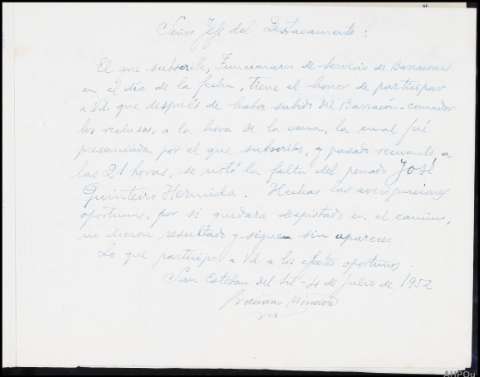 Señor Jefe del Destacamento:
El que subscribe, Funcionario de Servicio de Barracón
en el día de la fecha, tiene el honor de participar
a Vd que después de haber subido del Barracón-comedor
los reclusos, a la hora de la cena, la cual fué
presenciada por el que subscribe, y pasado recuento, a
las 21 horas, se notó la falta del penado José
Quinteiro Hermida. Hechas las averiguaciones
oportunas, por si quedara despistado en el camino,
no dieron resultado y sigue sin aparecer
Lo que participo a Vd a los efectos oportunos.
San Esteban del Sil - 4 de Julio de 1952